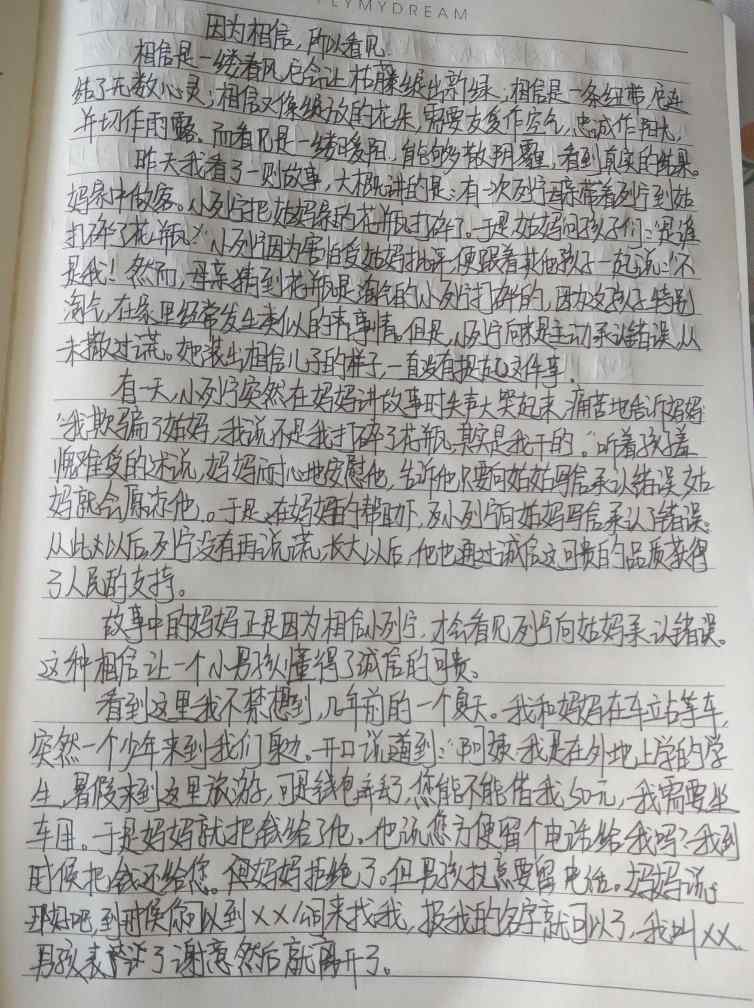 FLYMYDREAM
因为相信，所以看见
相信是一缕春风，它会让枯藤缀出新绿；相信是一条纽带，它连
结了无数心灵；相信又像绽放的花朵，需要友爱作空气，忠诚作阳光，
并切作雨露。而看见是一缕暖阳，能够多散阴霾，看到真实的结果。
昨天我看了一则故事，大概讲的是：有一次列宁母亲带着列宁到姑
妈家中做客。小列宁把姑妈家的花瓶打碎了。于是姑妈问孩子们：“是谁
打碎了花瓶？”小列宁因为害怕受姑妈批评，便跟着其他孩子一起说：“不
是我！然而，母亲猜到花瓶是淘气的小列宁打碎的，因为这孩子特别
淘气，在家里经常发生类似的事情。但是，小列宁向来是主动承认错误，从
未撒过谎。她装出相信儿子的样子，一直没有提起这件事。
有一天，小列宁突然在妈妈讲故事时失声大哭起来，痛苦地告诉妈妈
“我欺骗了姑妈，我说不是我打碎了花瓶，其实是我干的。”听着孩子羞
愧难受的述说，妈妈耐心地安慰他，告诉他只要向姑姑写信承认错误，姑
妈就会原谅他。于是，在妈妈的帮助下，小列宁向姑妈写信承认了错误。
从此以后，列宁没有再说谎，长大以后，他也通过诚信这可贵的品质获得
了人民的支持。
故事中的妈妈正是因为相信小列宁，才会看见列宁向姑妈承认错误。
这种相信让一个小男孩懂得了诚信的可贵。
看到这里我不禁想到，几年前的一个夏天。我和妈妈在车站等车，
突然一个少年来到我们身边。开口说道到：“阿姨，我是在外地上学的学
生，暑假来到这里旅游，可是钱包弄丢了，您能不能借我50元，我需要坐
车用。于是妈妈就把钱给了他。他说您方便留个电话给我吗？我到
时候把钱还给您。但妈妈拒绝了。但男孩执意要留电话。妈妈说：
那好吧，到时候你可以到××公司来找我，报我的名字就可以了，我叫××
男孩表示了谢意然后就离开了。